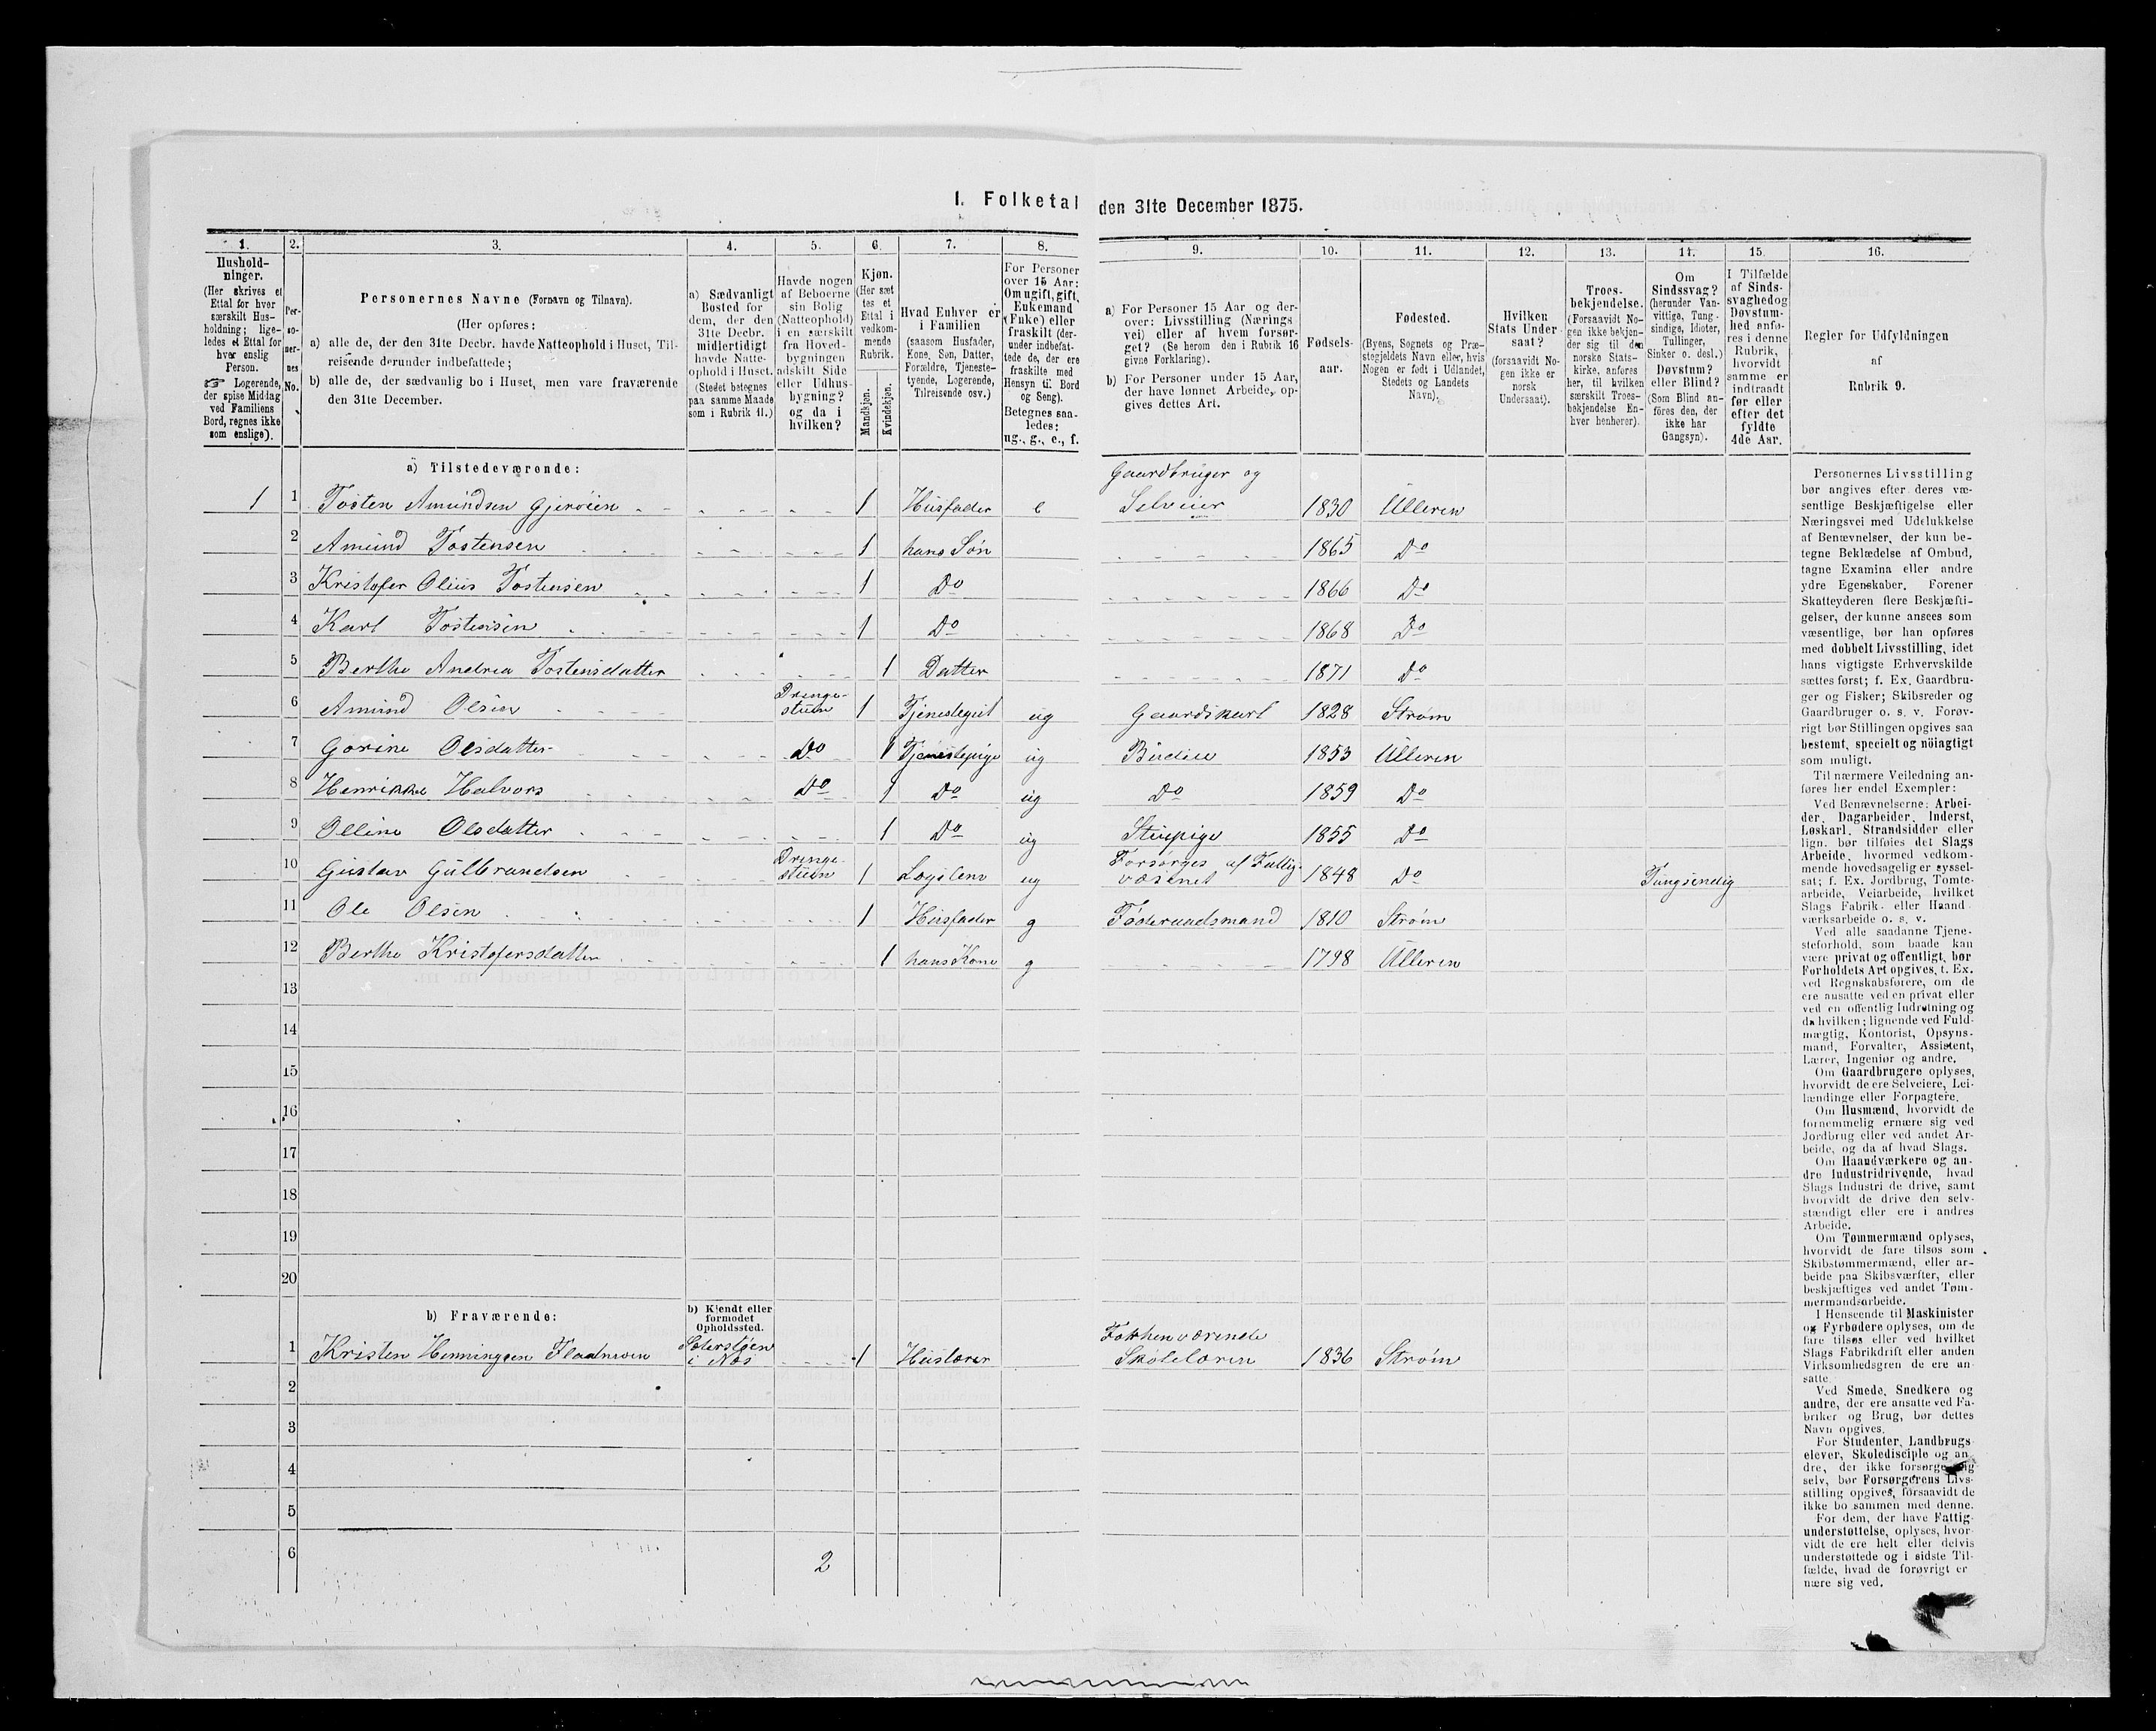 I. Folketal den 31te December 1875.
1. 2. 3. 4. 5. 6. 7. 8. 9. 10. 11. 12. 13. 14. 15. 16.
Hushold-
ninger.
(Her skrives et
Ettal for hver
særskilt Hus-
holdning; lige-
ledes et Ettal for
hver enslig
Person.
☞ Logerende,
der spise Middag
ved Familiens
Bord, regnes ikke
som enslige).
Per-
so-
ner-
nes
No.
Personernes Navne (Fornavn og Tilnavn).
(Her opføres:
a) alle de, der den 31te Decbr. havde Natteophold i Huset, Til-
reisende derunder indbefattede;
b) alle de, der sædvanlig bo i Huset, men vare fraværende
den 31te December.
a) Sædvanligt
Bosted for
dem, der den
31te Decbr.
midlertidigt
havde Natte-
ophold i Huset.
(Stedet betegnes
paa samme Maade
som i Rubrik 11.)
Havde nogen
af Beboerne
sin Bolig
(Natteophold)
i en særskilt
fra Hoved-
bygningen
adskilt Side
eller Udhus-
bygning?
og da i
hvilken?
Kjøn.
(Her sæt
tes et
Ettal i
vedkom-
mende
Rubrik.
Mandkjøn.
Kvindekjøn.
Hvad Enhver er
i Familien
(saasom Husfader,
Kone, Søn, Datter,
Forældre, Tjeneste-
tyende, Logerende,
Tilreisende osv.)
For Personer
over 15 Aar:
Om ugift, gift,
Enkemand
(Enke) eller
fraskilt (der-
under indbefat-
tede de, der ere
fraskilte med
Hensyn til Bord
og Seng).
Betegnes saa-
ledes:
ug., g., e., f.
a) For Personer 15 Aar og der-
over: Livsstilling (Nærings-
vei) eller af hvem forsør-
get? (Se herom den i Rubrik 16
givne Forklaring).
b) For Personer under 15 Aar,
der have lønnet Arbeide, op-
gives dettes Art.
Fødsels-
aar.
Fødested.
(Byens, Sognets og Præ-
stegjeldets Navn eller, hvis
Nogen er født i Udlandet,
Stedets og Landets
Navn).
Hvilken
Stats Under-
saat?
(forsaavidt No-
gen ikke er
norsk
Undersaat).
Troes-
bekjendelse.
(Forsaavidt No-
gen ikke bekjen-
der sig til den
norske Stats-
kirke, anføres
her, til hvilken
særskilt Troes-
bekjendelse En-
hver henhører).
Om
Sindssvag?
(herunder Van-
vittige, Tung-
sindige, Idioter,
Tullinger,
Sinker o. desl.)
Døvstum?
eller Blind?
(Som Blind an-
føres den, der
ikke har
Gangsyn).
I Tilfælde
af Sinds-
svaghed og
Døvstum-
hed anfø-
res i denne
Rubrik,
hvorvidt
samme er
indtraadt
før eller
efter det
fyldte
4de Aar.
Regler for Udfyldningen
af
Rubrik 9.
a) Tilstedeværende:
Gaardbruger og
1 1 Tosten Amundsen Gjerøien 1 Husfader e Selveier 1830 Ulleren
2 Amund Tostensen 1 hans Søn 1865 Do
3 Kristofer Olius Tostensen 1 Do 1866 Do
4 Karl Tostensen 1 Do 1868 Do
5 Berthe Andrea Tostensdatter 1 Datter 1871 Do
6 Amund Olsen Drenge-
stuen 1 Tjenestegut ug Gaardskarl 1828 Strøm
7 Gorine Olsdatter Do 1 Tjenestepige ug Budeie 1853 Ulleren
8 Henrikke Halvors Do 1 Do ug Do 1859 Do
9 Olline Olsdatter 1 Do ug Stuepige 1855 Do
10 Gustav Gulbrandsen Drenge-
stuen 1 Logilem ug Forsørges af Fattig-
væsenet 1848 Do Tungsindig
11 Ole Olsen 1 Husfader g Føderaadsmand 1810 Strøm
12 Berthe Kristofersdatter 1 hans Kone g 1798 Ulleren
13
14
15
16
17
18
19
20
b) Fraværende:
b) Kjendt eller
formodet
Opholdssted.
1 Kristen Henningsen i Nes 1 Huslærer Forhenværende
Skolelærer 1836 Strøm
2
3
4
5
6
2
Personernes Livsstilling
bør angives efter deres væ-
sentlige Beskjæftigelse eller
Næringsvei med Udelukkelse
af Benævnelser, der kun be-
tegne Beklædelse af Ombud,
tagne Examina eller andre
ydre Egenskaber. Forener
Skatteyderen flere Beskjæfti-
gelser, der kunne ansees som
væsentlige, bør han opføres
med dobbelt Livsstilling, idet
hans vigtigste Erhvervskilde
sættes først; f. Ex. Gaardbru-
ger og Fisker; Skibsreder og
Gaardbruger o. s. v. Forøv-
rigt bør Stillingen opgives saa
bestemt, specielt og nøiagtigt
som muligt.
Til nærmere Veiledning an-
føres her endel Exempler:
Ved Benævnelserne: Arbei-
der, Dagarbeider, Inderst,
Løskarl, Strandsidder eller
lign. bør tilføies det Slags
Arbeide, hvormed vedkom-
mende hovedsagelig er syssel-
sat; f. Ex. Jordbrug, Tomte-
arbeide, Veiarbeide, hvilket
Slags Fabrik- eller Haand-
værksarbeide o. s. v.
Ved alle saadanne Tjene-
steforhold, som baade kan
være privat og offentligt, bør
Forholdets Art opgives, t. Ex.
ved Regnskabsførere, om de
ere ansatte ved en privat eller
ved en offentlig Indretning og
da hvilken; lignende ved Fuld-
mægtig, Kontorist, Opsyns-
mand, Forvalter, Assistent,
Lærer, Ingeniør og andre.
Om Gaardbrugere oplyses,
hvorvidt de ere Selveiere, Lei-
lændinge eller Forpagtere.
Om Husmænd, hvorvidt de
fornemmelig ernære sig ved
Jordbrug eller ved andet Ar-
beide, og da af hvad Slags.
Om Haandværkere og an-
dre Industridrivende, hvad
Slags Industri de drive, samt
hvorvidt de drive den selv-
stændigt eller ere i andres
Arbeide.
Om Tømmermænd oplyses,
hvorvidt de fare tilsøs som
Skibstømmermænd, eller ar-
beide paa Skibsværfter, eller
beskjæftiges ved andet Tøm-
mermandsarbeide.
I Henseende til Maskinister
og Fyrbødere oplyses, om de
fare tilsøs eller ved hvilket
Slags Fabrikdrift eller anden
Virksomhedsgren de ere an-
satte.
Ved Smede, Snedkere og
andre, der ere ansatte ved Fa-
briker og Brug, bør dettes
Navn opgives.
For Studenter, Landbrugs-
elever, Skoledisciple og an-
dre, der ikke forsørge sig
selv, bør Forsørgerens Livs-
stilling opgives, forsaavidt de
ikke bo sammen med denne.
For dem, der have Fattig-
understøttelse, oplyses, hvor-
vidt de ere helt eller delvis
understøttede og i sidste Til-
fælde, hvad de forøvrigt er-
nære sig ved.